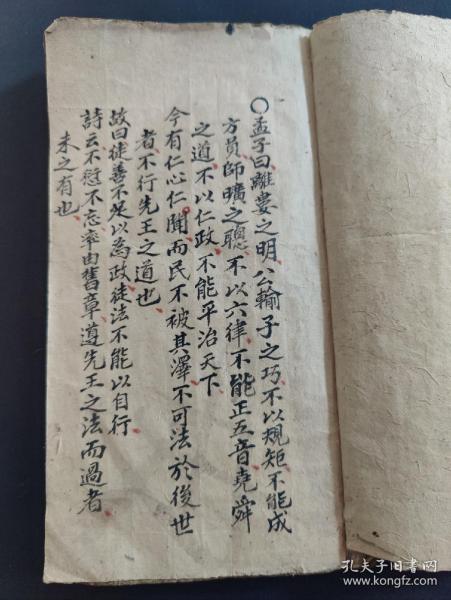 〇孟子曰離婁之明公輸子之巧不以規矩不能成
方員師曠之聰不以六律不能正五音堯舜
之道不以仁政不能平治天下
今有仁心仁聞而民不被其澤不可法於後世
者不行先王之道也
故曰徒善不足以為政徒法不能以自行
詩云不愆不忘率由舊章遵先王之法而過者
未之有也
孔夫子旧书网
www.kongfz.com